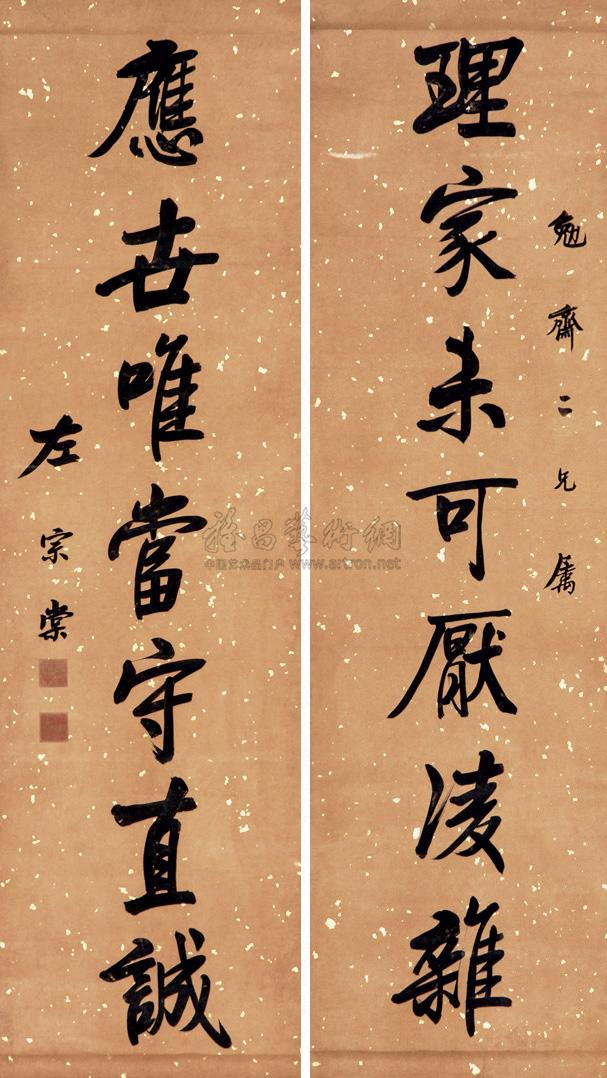 勉齋二兄属
理家未可厭淩雜
應世唯當守直誠
左宗棠
雅昌藝術網
中国艺术品门户 www.artron.net